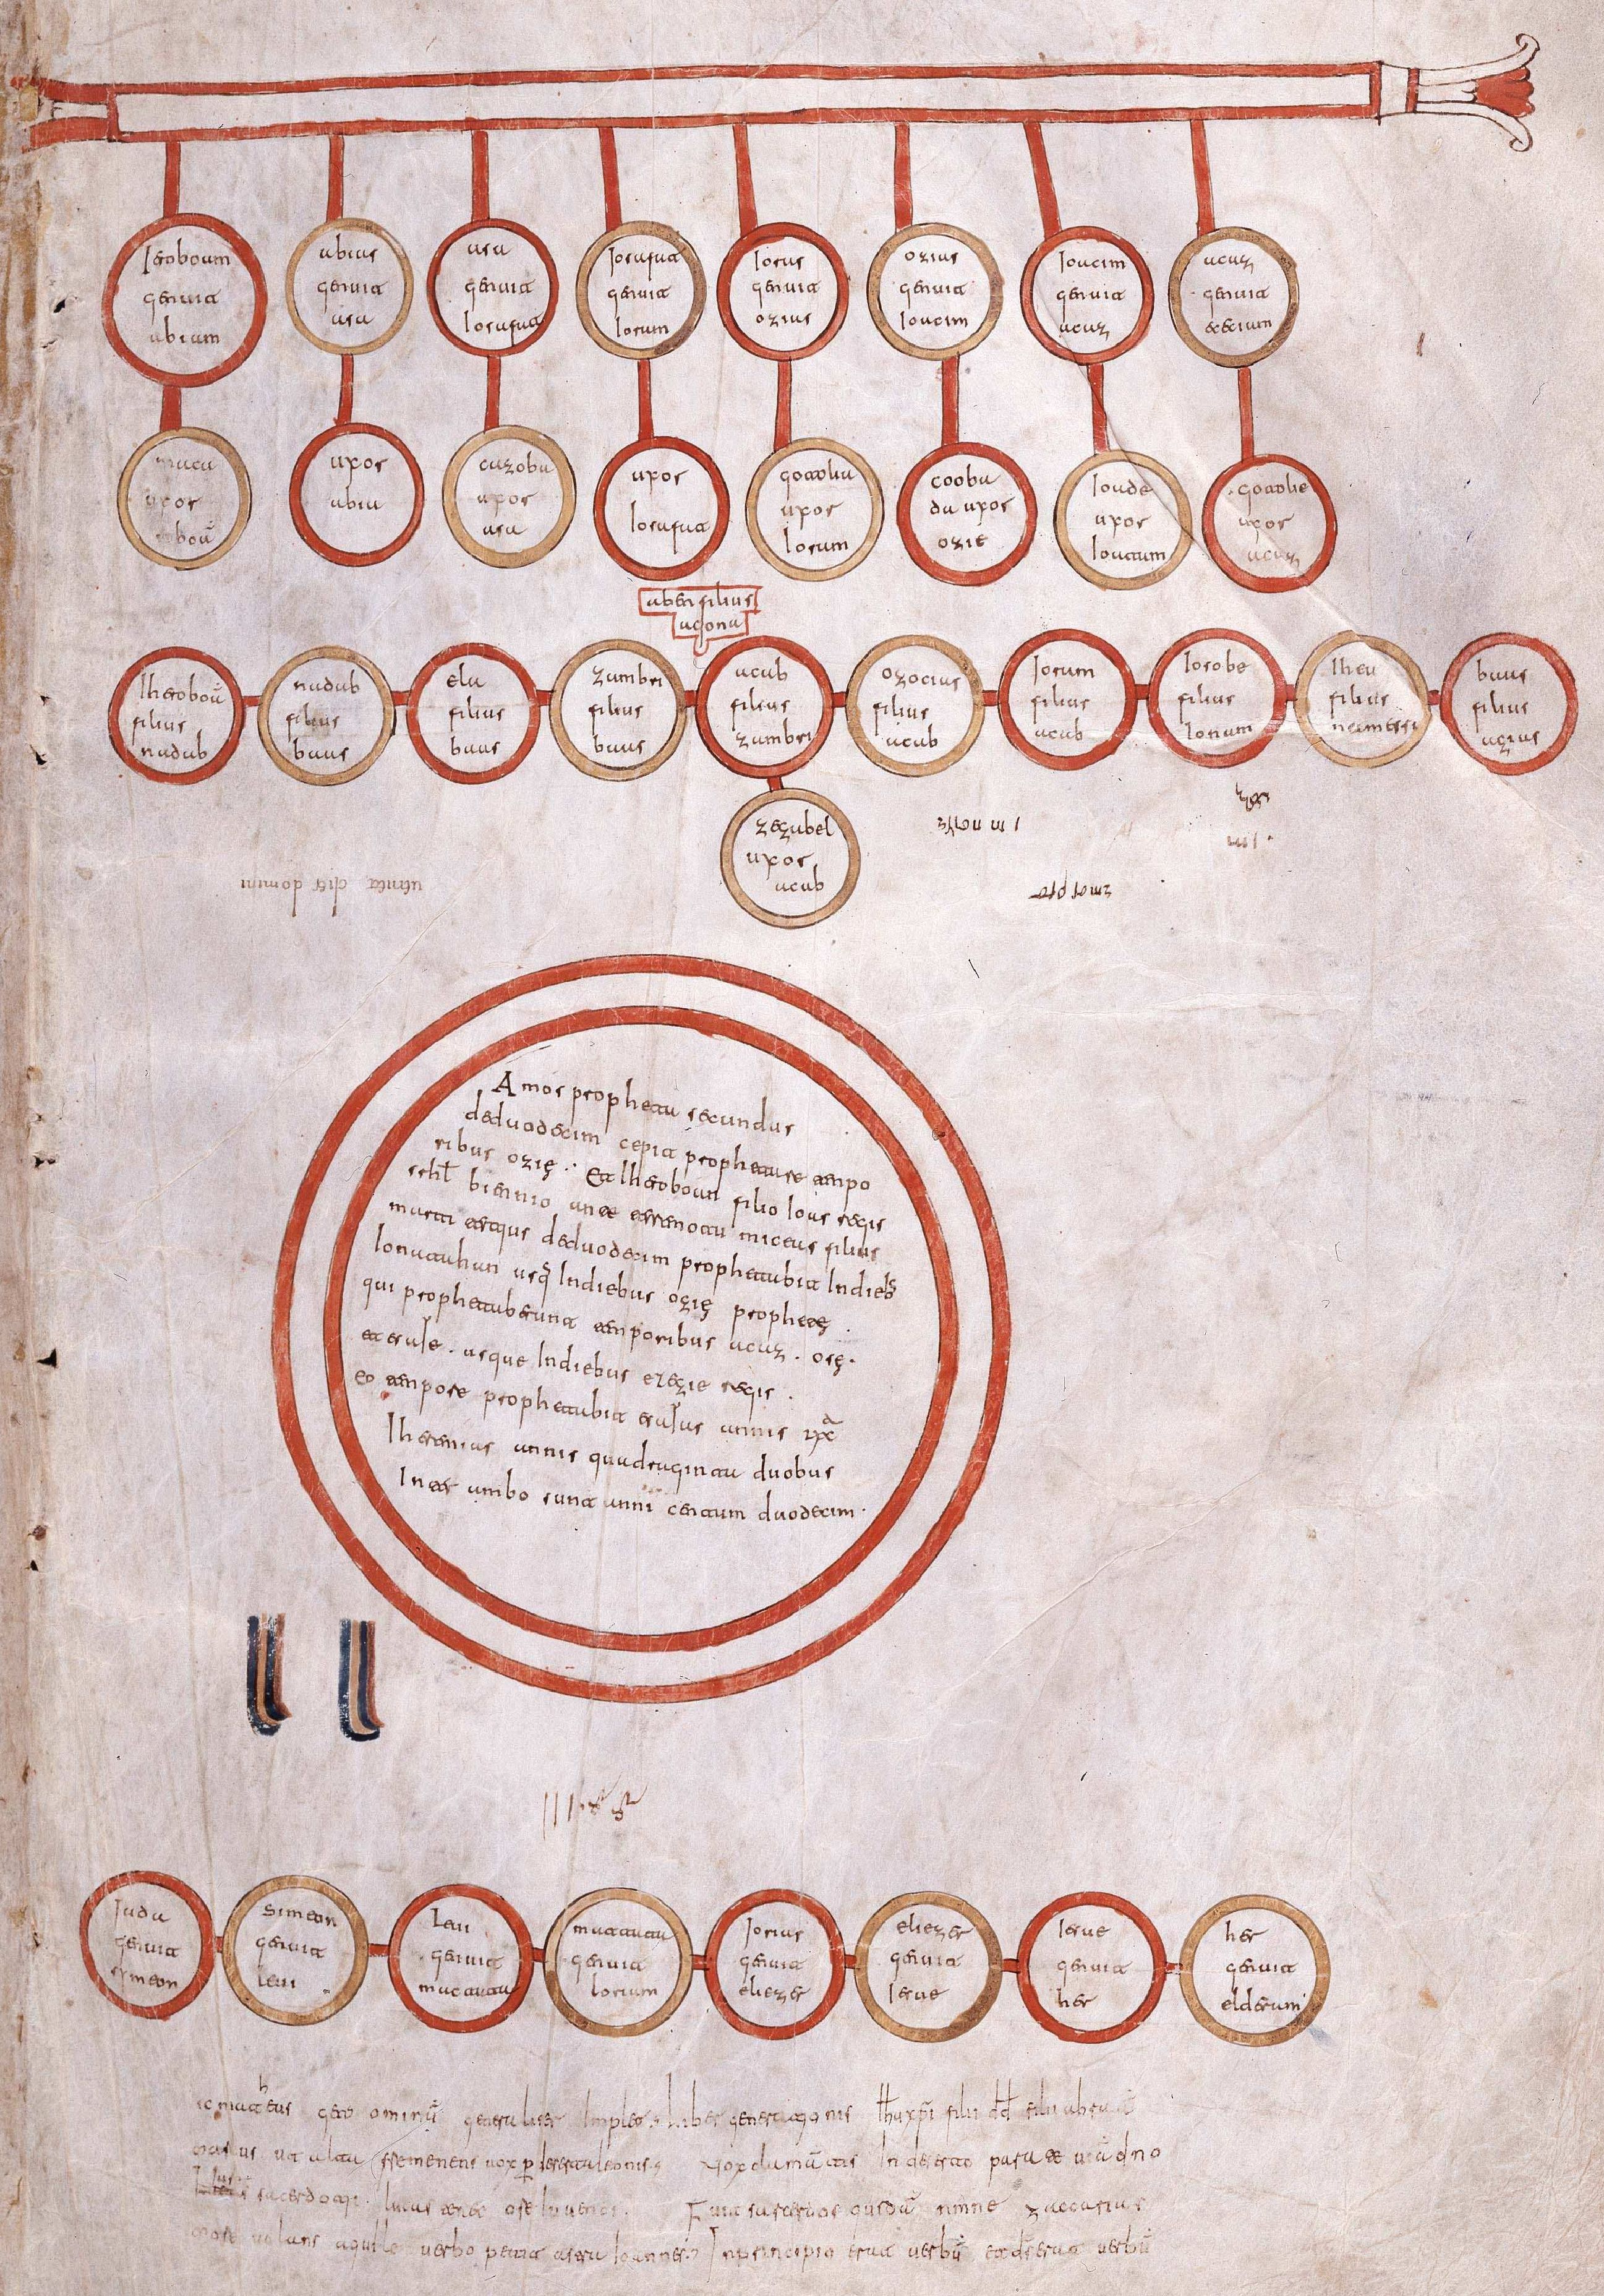 Ieroboam
genuit
abiam
abias
genuit
asa
asa
genuit
Iosafat
Iosafat
genuit
Ioram
Ioras
genuit
ozias
ozias
genuit
Ioacim
Ioacim
genuit
acaz
acaz
genuit
maca
uxor
uxor
abia
cazoba
uxor
asa
uxor
Iosafat
gotolia
uxor
Ioram
cooba
da uxor
ozie
Ioade
uxor
Ioatam
gotolie
uxor
acaz
aben filius
acona
Iheroboā
filius
nadab
nadab
filius
baas
ela
filius
baas
zambri
filius
baas
acab
filius
zambri
ozocias
filius
acab
Ioram
filius
acab
Iosobe
filius
Ioram
Iheu
filius
nemessi
baas
filius
azias
zezabel
uxor
acab
Amos propheta secundus
deduodecim cepit prophetare tempo
ribus ozię. Et Iheroboan filio Ioas regis
srhl biennio ante terremotu miceas filius
murti estque deduodecim prophetabit Indiebs
Ionatahan usq Indiebus ozię prophetę
qui prophetaberunt temporibus acaz. osę.
et esaye. usque Indiebus ezezie regis.
eo tempore prophetabit esayas annis
Iheremias annis quadraginta duobus
Inter ambo sunt anni centum duodecim.
Iuda
genuit
symeon
Simeon
genuit
leui
Leui
genuit
matatau
matatau
genuit
Iorium
Iorius
genuit
eliezer
eliezer
genuit
Iesue
Iesue
genuit
her
her
genuit
elderum
generaliter Implet liber generationis filii dd filii abraā
uox In deserto parate uiā dno
sacerdoti lucas tenet ore Iuuenci. Fuit sacerdos quidā nmne zaccarias
more uolans aquile uerbo petit astra Ioannes Inprincipio erat uerbū et ds erat uerbū